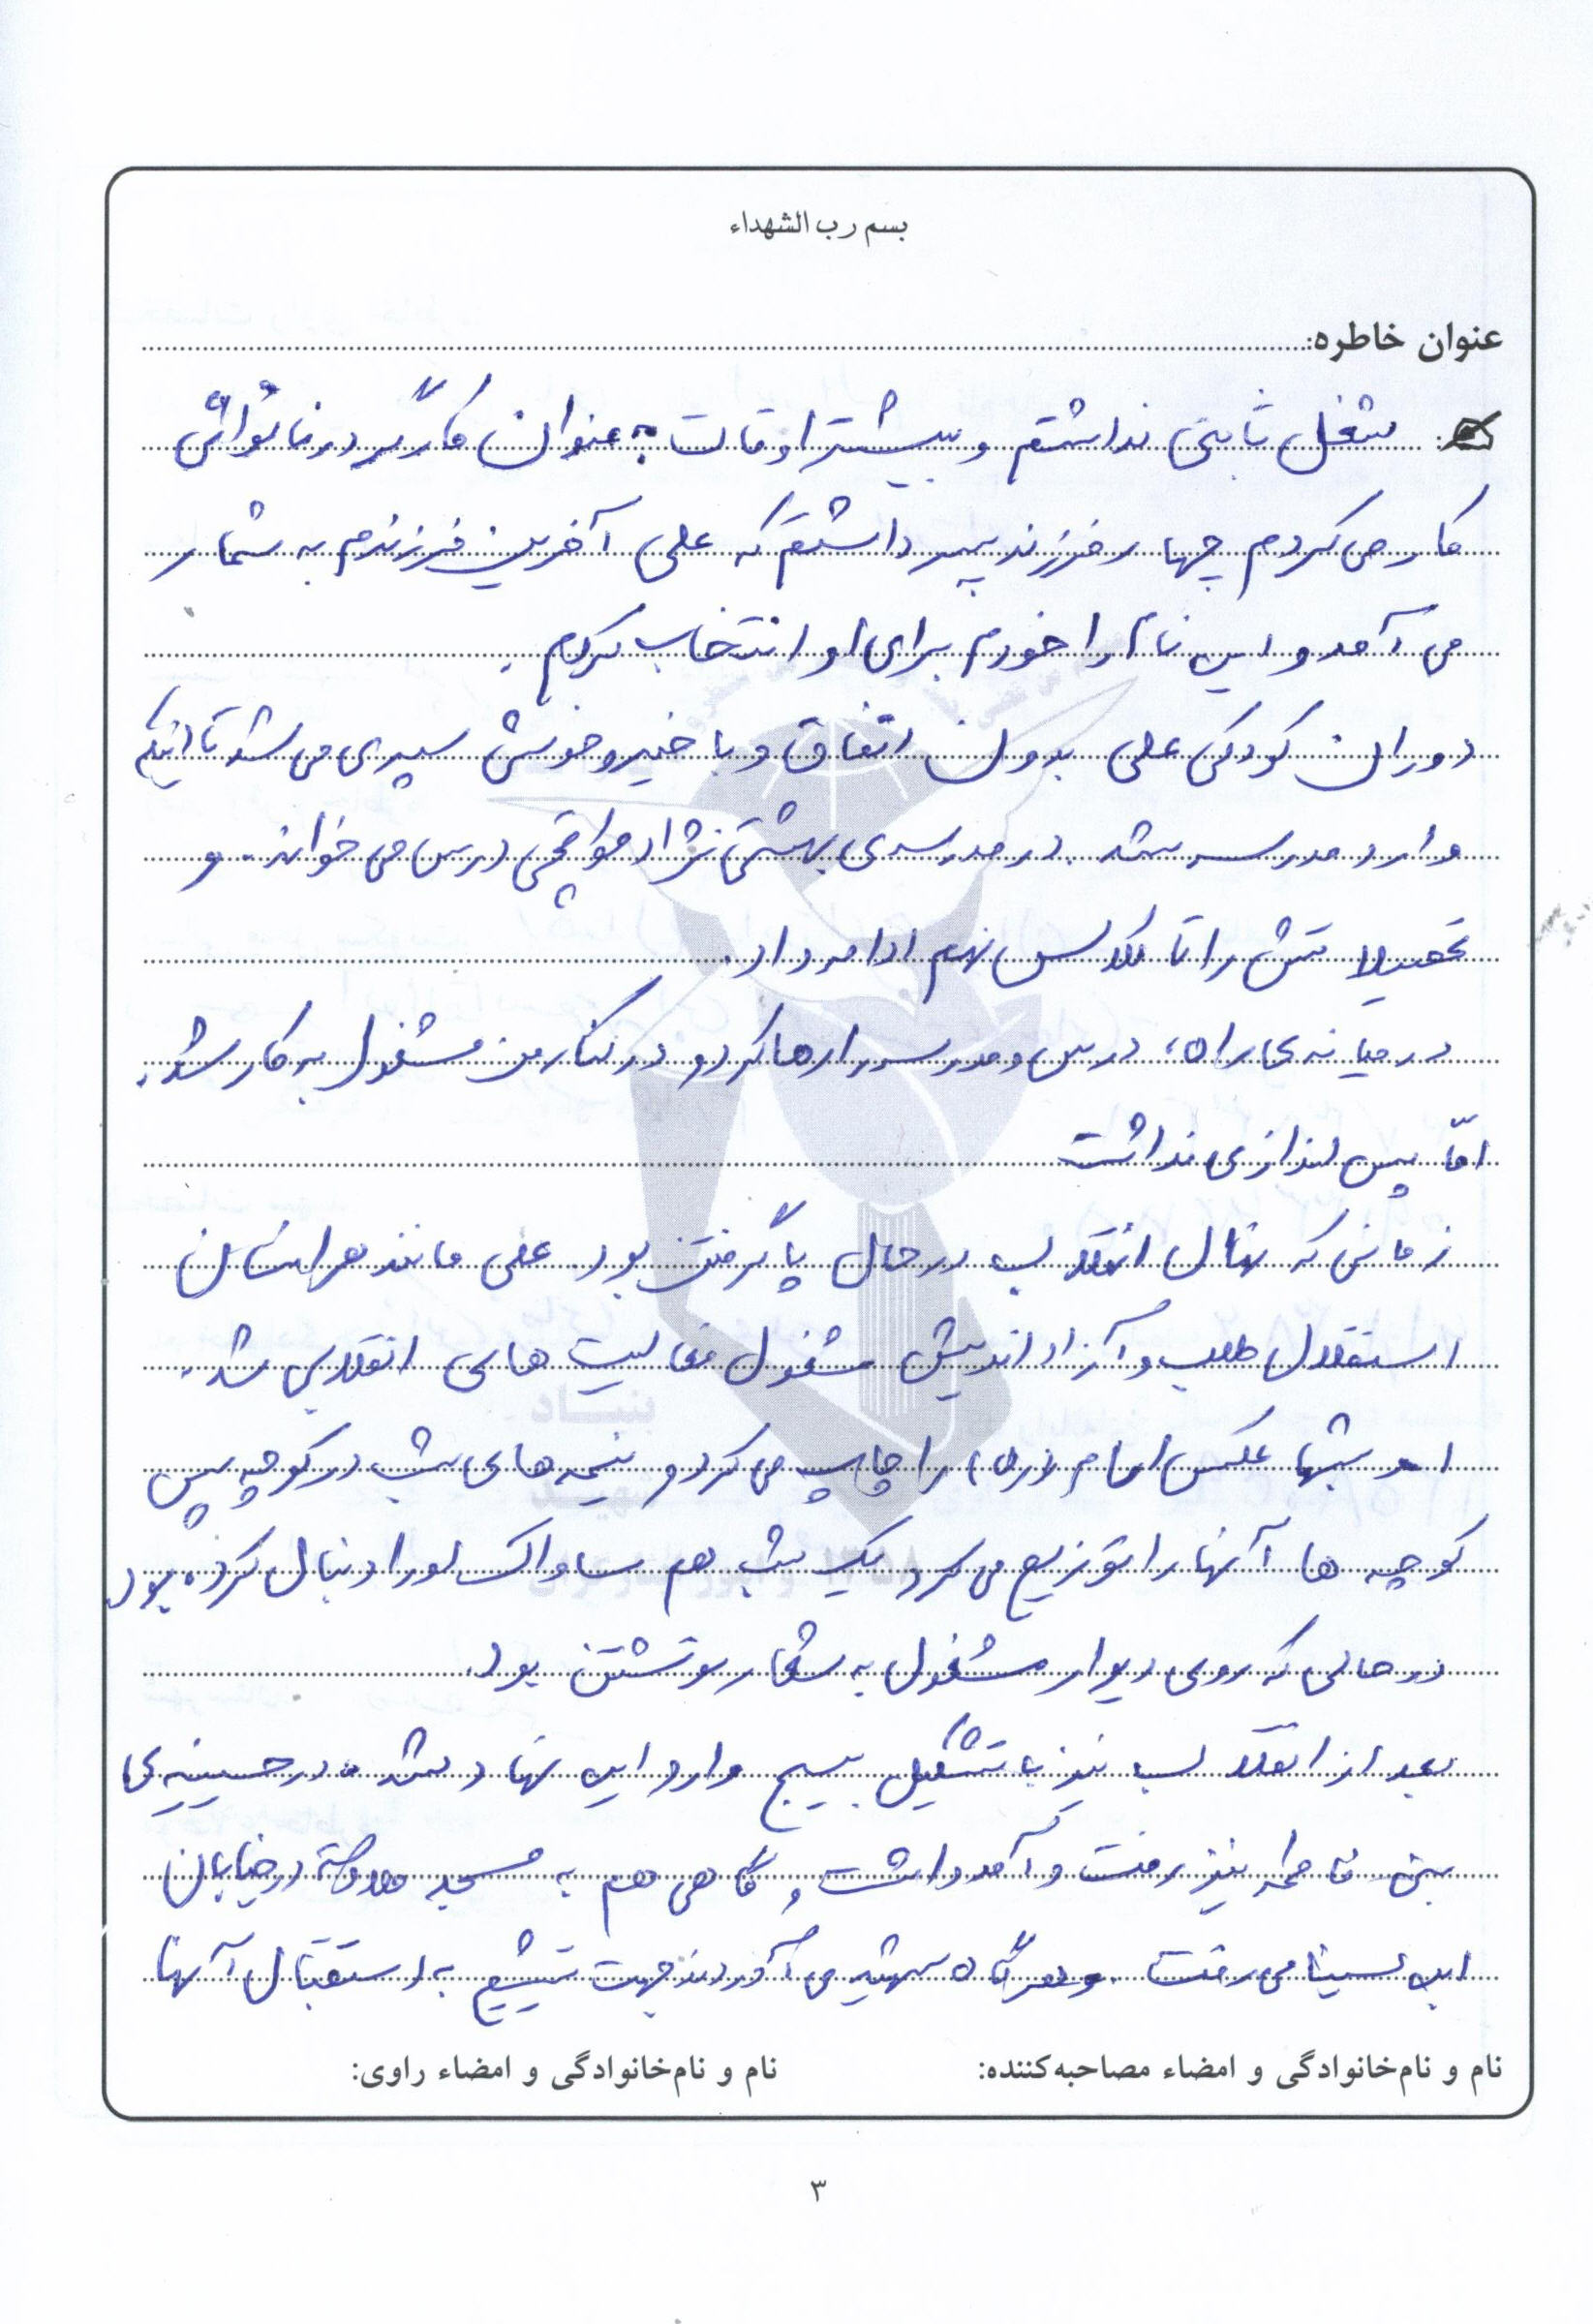 بسم رب الشهداء
عنوان خاطره:
شغل ثابتی نداشتم و بیشتر اوقات به عنوان کارگر در نانوائی
کار می کردم چهار فرزند پسر داشتم که علی آخرین فرزندم به شمار
می آمد و این نام را خودم برای او انتخاب کردم.
دوران کودکی علی بدون اتفاق و با خیر و خوشی سپری می شد تا اینکه
وارد مدرسه شد. در مدرسه ی بهشتی نژاد درس می خواند. و
تحصیلاتش را تا کلاس نهم ادامه داد.
در میانه ی راه، درس و مدرسه را رها کرد و در کنار من مشغول به کار شد.
امّا پس اندازی نداشت
زمانی که نهال انقلاب در حال پا گرفتن بود. علی مانند هر انسان
استقلال طلب و آزاد اندیش مشغول فعالیت های انقلابی شد.
او شبها عکس امام (ره) را چاپ می کرد و نیمه های شب در کوچه پس
کوچه ها آنها را توزیع می کرد یک شب هم ساواک او را دنبال کرده بود
در حالی که روی دیوار مشغول به شعار نوشتن بود.
بعد از انقلاب نیز با تشکیل بسیج وارد این نهاد شد. در حسینیه ی
بنی فاطمه نیز رفت و آمد داشت و گاهی هم به مسجد در خیابان
ابن سینا می رفت. و هر گاه شهید می آوردند جهت تشییع به استقبال آنها
نام و نام‌خانوادگی و امضاء مصاحبه‌کننده:
نام و نام‌خانوادگی و امضاء راوی:
۳